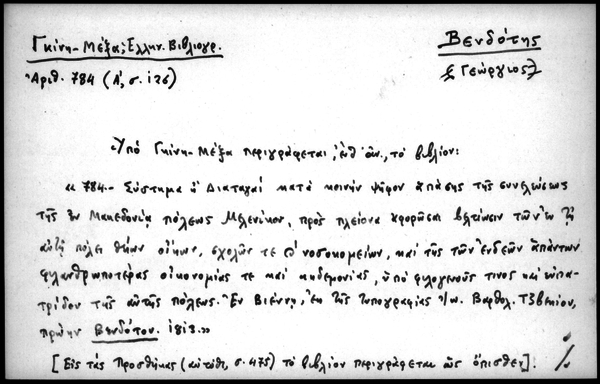 Γκίνη-Μέξα, Ελλην. Βιβλιογρ.
Βενδότης
Ἀριθ. 784 (Α', σ. 126)
Γεώργιος
Ὑπό Γκίνη-Μέξα περιγράφεται, ἐνθ' ἀν., τό βιβλίον:
«784.- Σύστημα ἤ Διαταγαί κατά κοινήν ψῆφον ἁπάσης τῆς συνελεύσεως
τῆς ἐν Μακεδονίᾳ πόλεως Μελενίκου, πρός πλείονα ἀφορῶσαι βελτίωσιν τῶν ἐν τῇ
αὐτῇ πόλει θείων οἴκων, σχολῶν τε καί νοσοκομείων, καί τῆς τῶν ἐνδεῶν ἁπάντων
φιλανθρωποτέρας οἰκονομίας τε καί κηδεμονίας, ὑπό φιλογενοῦς τινος καί συμπα-
τριώτου τῆς αὐτῆς πόλεως. Ἐν Βιέννῃ, ἐκ τῆς τυπογραφίας Ἰω. Βαρθολ. Τζβεκίου,
πρώην Βενδότου. 1813.»
[Εἰς τάς Προσθήκας (αὐτόθι, σ. 475) τό βιβλίον περιγράφεται ὡς ὄπισθεν].